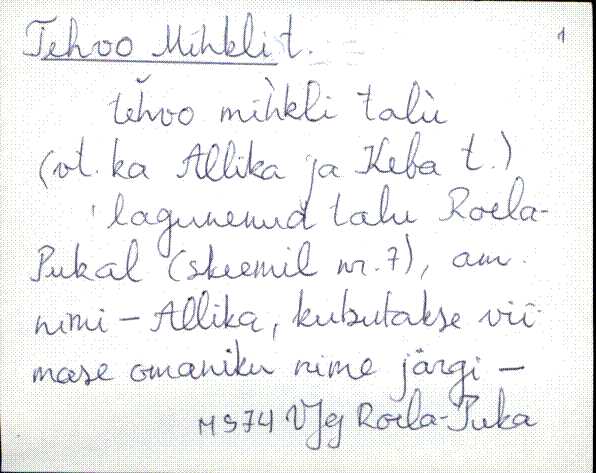 Tehvo Mihkli t. 1
tĕhvo mìhkli talù
(vt. ka Allika ja Keba t.)
lagunenud talu Roela-
Pukal (skeemil nr. 7), am.
nimi – Allika, kutsutakse vii-
mase omaniku nime järgi –
MS74 VJg Roela-Puka